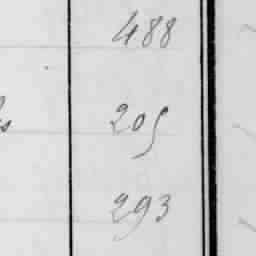 488
205
293